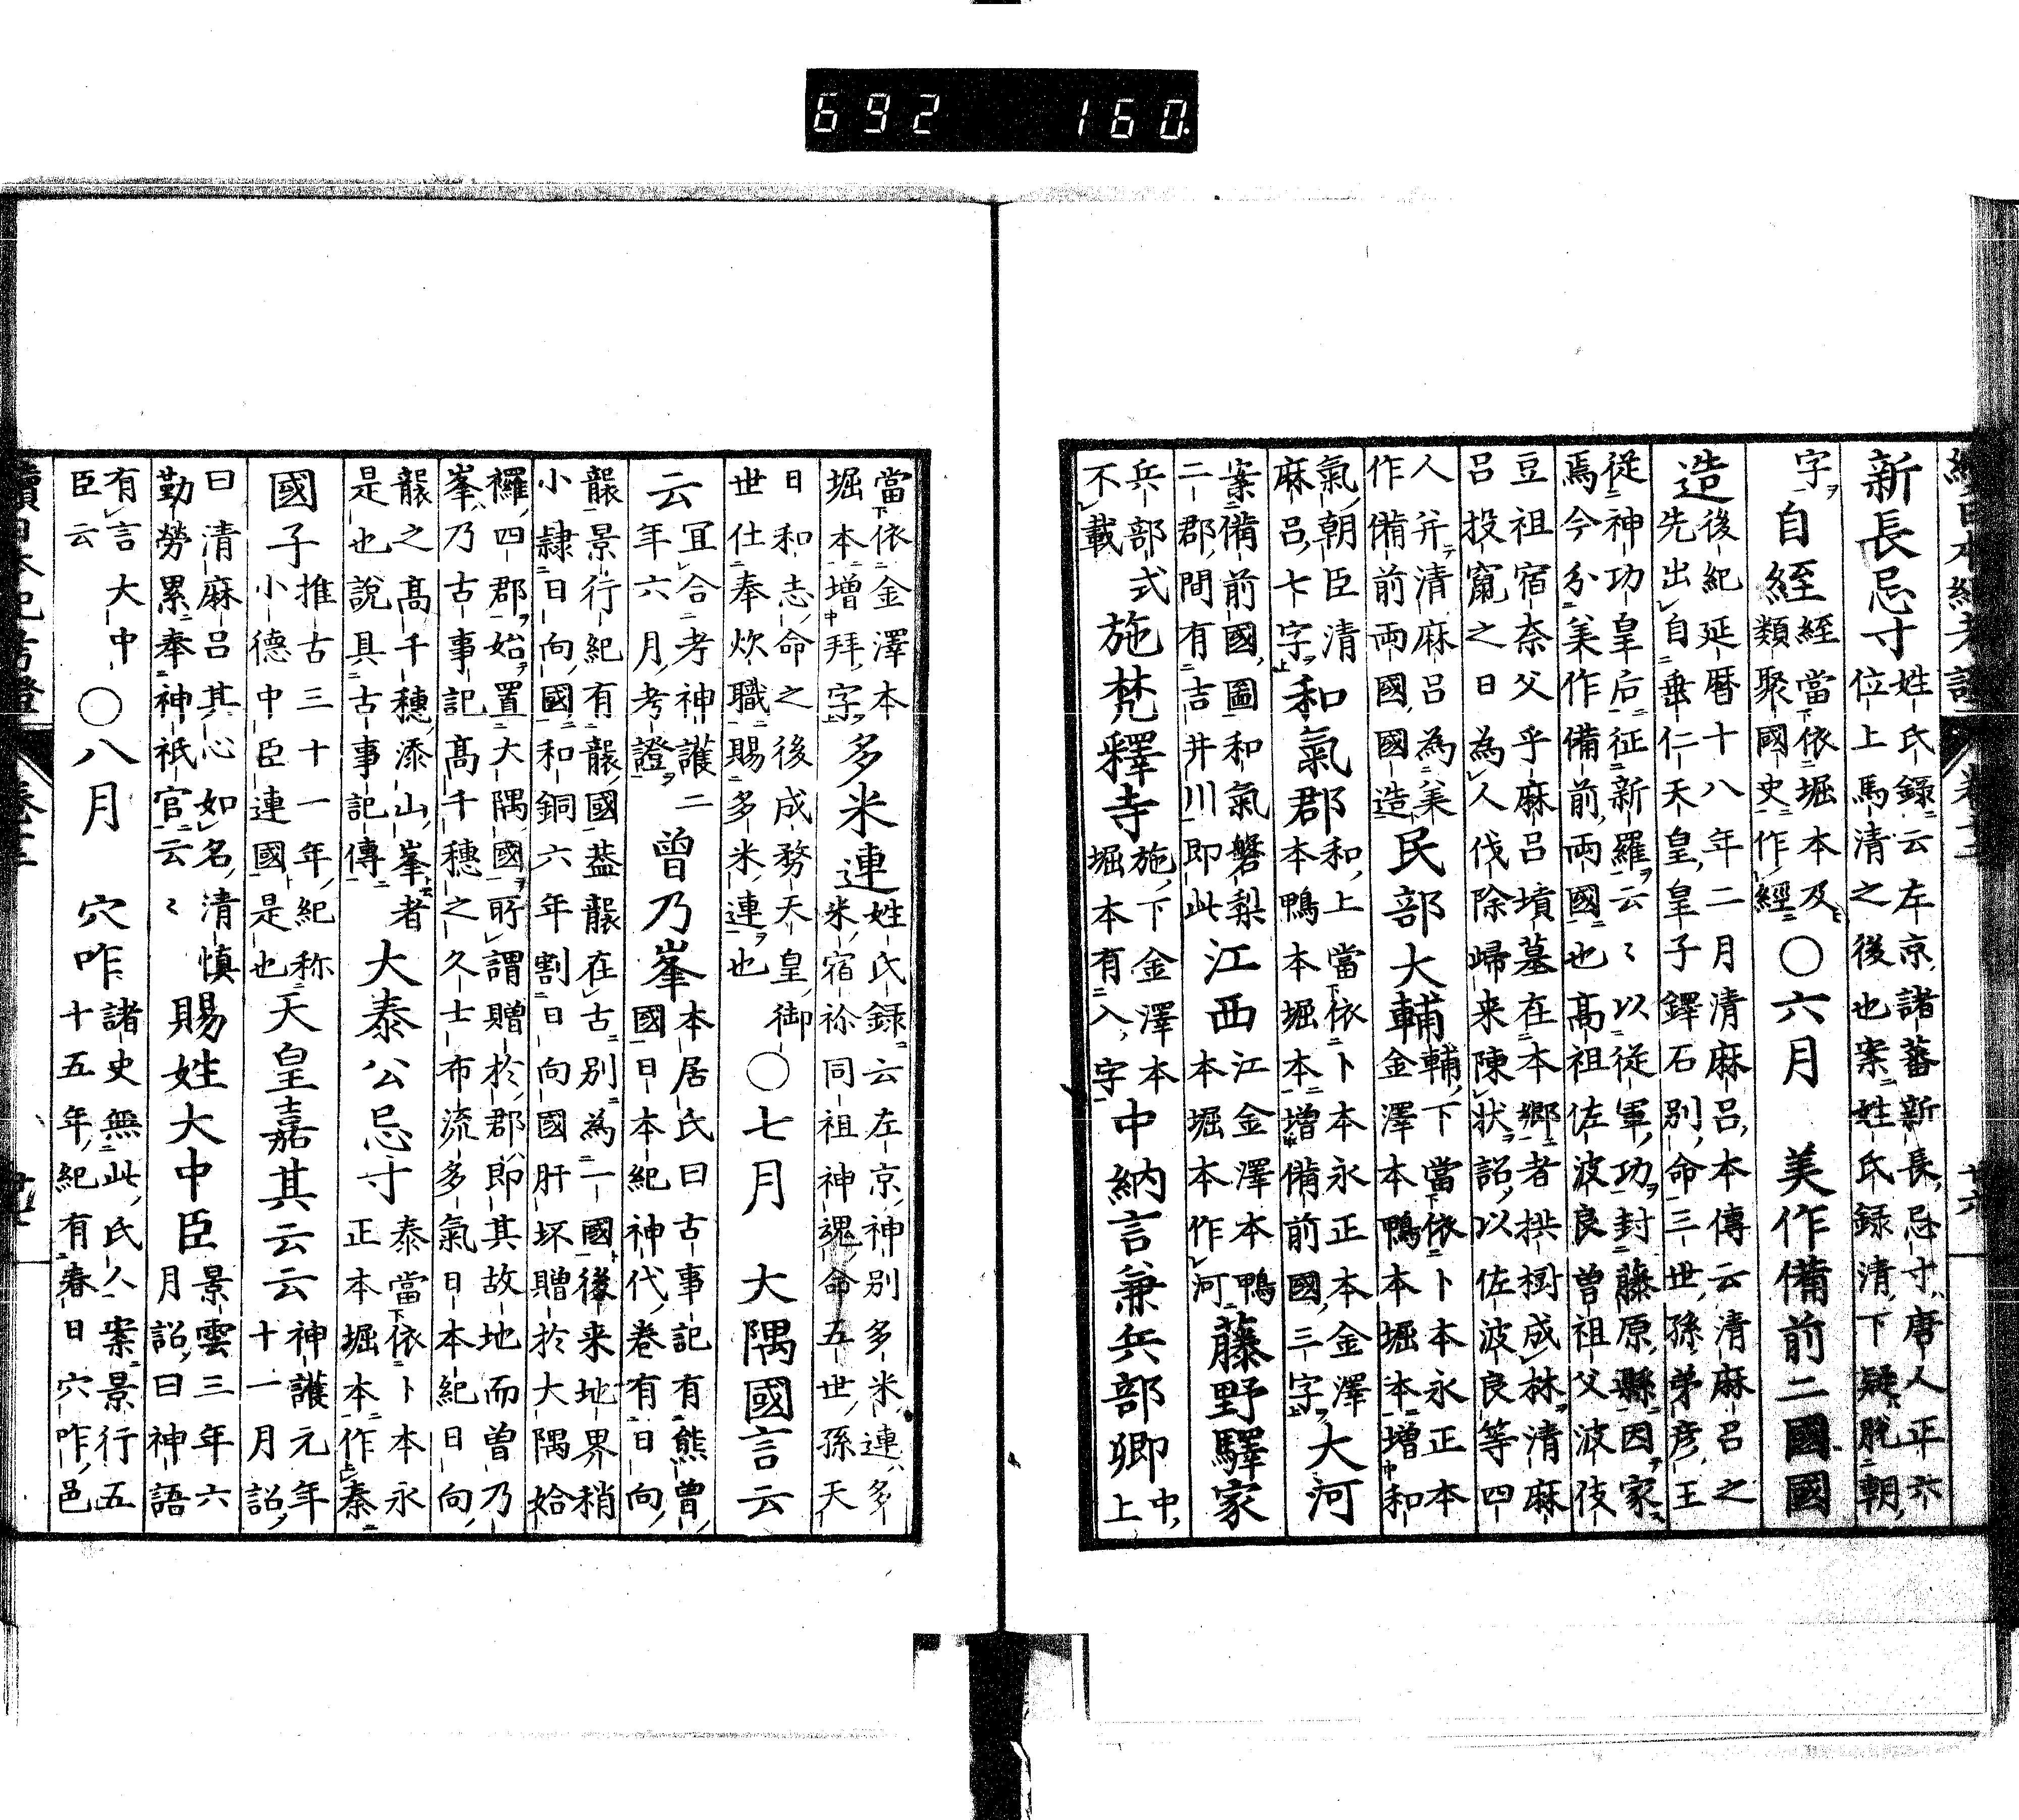 692 160.
新長忌寸 姓氏録云左京諸蕃新長忌寸唐人正六
位上馬清之後也案姓氏録清下疑脱朝
字 自経 経當依堀本及
類聚國史作經 ○六月 美作備前二國國
造 後紀延暦十八年二月清麻呂本傳云清麻呂之
先出自垂仁天皇皇子鐸石別命三世孫弟彦王
從神功皇后征新羅云〻以從軍功封藤原縣因家
焉今分美作備前兩國也高祖佐波良曽祖父波伎
豆祖宿奈父乎麻呂墳墓在本郷者拱樹成林清麻
呂投竄之日為人伐除歸来陳状詔以佐波良等四
人并清麻呂為美
作備前兩國國造 民部大輔 輔下當依卜本永正本
金澤本鴨本堀本増和
氣朝臣清
麻呂七字 和氣郡 和上當依卜本永正本金澤
本鴨本堀本増備前國三字 大河
案備前國圖和氣磐梨
二郡間有吉井川即此 江西 江金澤本鴨
本堀本作河 藤野驛家
兵部式
不載 施梵釋寺 施下金澤本
堀本有入字 中納言兼兵部卿 中
上
當依金澤本
堀本増拜字 多米連 姓氏録云左京神別多米連多
米宿祢同祖神魂命五世孫天
日和志命之後成務天皇御
世仕奉炊職賜多米連也 ○七月 大隅國言云
云 冝合考神護二
年六月考證 曽乃峯 本居氏曰古事記有熊曽
國日本紀神代卷有日向
襲景行紀有襲國葢襲在古別為一國後来地界稍
小隷日向國和銅六年割日向國肝坏贈於大隅姶
䙥四郡始置大隅國所謂贈於郡即其故地而曽乃
峯乃古事記高千穗之久士布流多氣日本紀日向
襲之高千穗添山峯者
是也說具古事記傳 大泰公忌寸 泰當依卜本永
正本堀本作秦
國子 推古三十一年紀称
小德中臣連國是也 天皇嘉其云云 神護元年
十一月詔
曰清麻呂其心如名清慎
勤勞累奉神祇官云〻 賜姓大中臣 景雲三年六
月詔曰神語
有言大中
臣云 ○八月 穴咋 諸史無此氏人案景行五
十五年紀有春日穴咋邑